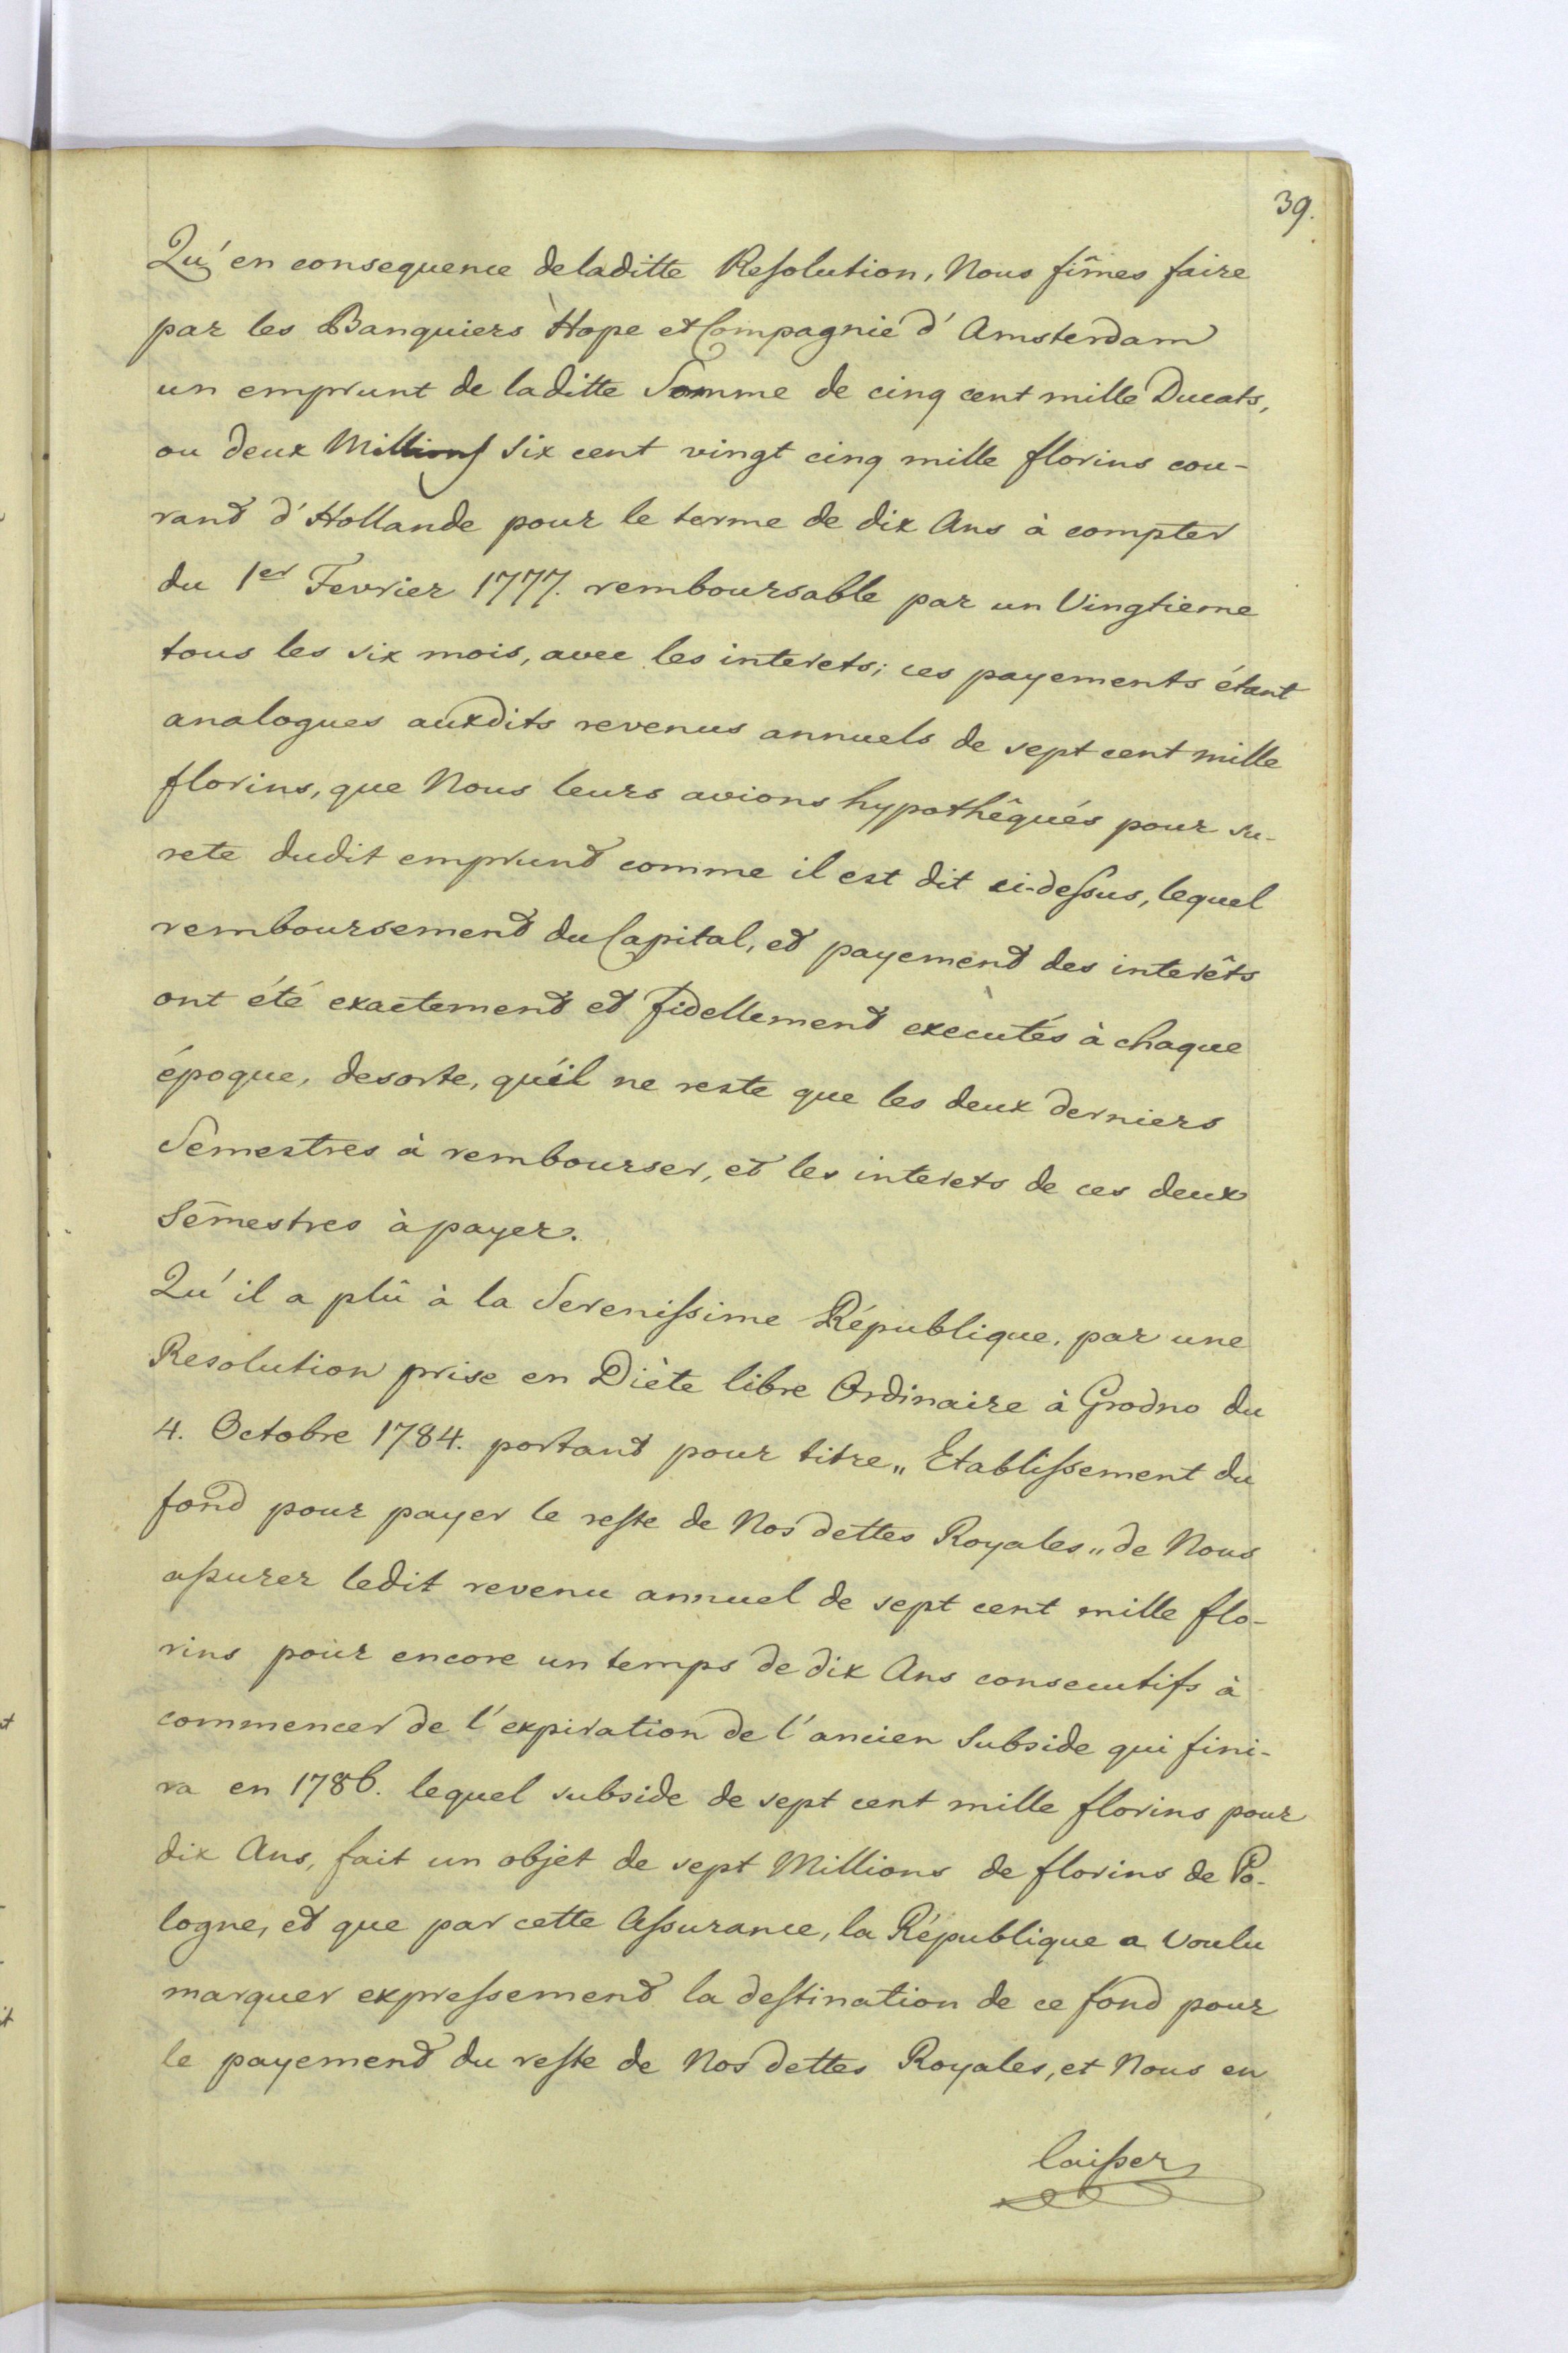 39.
Qu'en consequence deladitte Resolution, Nous fîmes faire
par les Banquiers Hope et Compagnie d'Amsterdam
un emprunt de laditte Somme de cinq cent mille Ducats,
ou deux Millions Six cent vingt cinq mille florins cou-
rant d'Hollande pour le terme de dix Ans à compter
du 1er Fevrier 1777. remboursable par un Vingtieme
tous les six mois, avec les interets; ces payements étant
analogues auxdits revenus annuels de sept cent mille
florins, que Nous leurs avions hypothêqués pour su-
rete dudit emprunt comme il est dit ci-dessus, lequel
remboursement du Capital, et payement des interêts
ont été exactement et fidellement executés à chaque
époque, desorte, qu'il ne reste que les deux derniers
Semestres à rembourser, et les interets de ces deux
Sêmestres à payer.
Qu'il a plû à la Serenissime République, par une
Resolution prise en Diète libre Ordinaire à Grodno du
4. Octobre 1784. portant pour titre „ Etablissement du
fond pour payer le reste de Nos dettes Royales „ de Nous
assurer ledit revenu annuel de sept cent mille flo-
rins pour encore un temps de dix Ans consecutifs à
commencer de l'expiration de l'ancien Subside qui fini-
ra en 1786. lequel subside de sept cent mille florins pour
dix Ans, fait un objet de sept Millions de florins de Po-
logne, et que par cette Assurance, la République a voulu
marquer expressement la destination de ce fond pour
le payement du reste de Nos dettes Royales, et Nous en
laisser